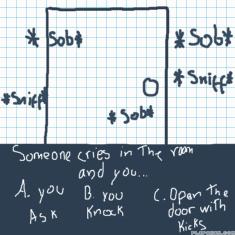 * Sob*
*Sob*
* Sniff*
*Sniff*
*Sob*
Someone cries in the room
and you...
A. you
Ask
B. you
Knock
C. Open the
door with
kicks
FLIPANIM.COM